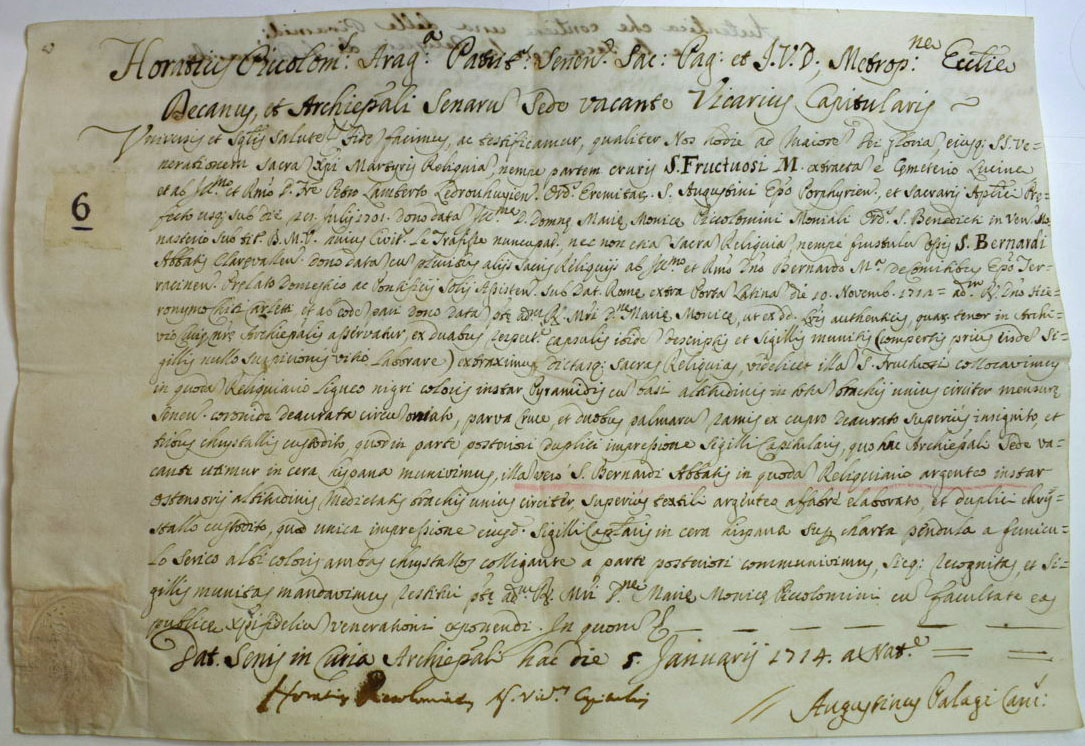 Horatius Piccolom: Arag: Patrit: Senen: Sac: Pag: et J.V.D, Metrop:ne Ecclie
Decanus, et Archiepali Senaru Sede vacante Vicarius Capitularis
Universis et Sglis salute fide facimus, ac testificamur, qualiter Nos hodie ad Maiore Dei gloria ejusq. SS. Ve=
nerationem Sacra Xpi Martyris Reliquia, nempe partem cruris S. Fructuosi M. extracta è Cmeterio Lucinę
et ab Illmo et Rmo D. Fre Petro Lamberto Ledrou Ord. Eremitar. S. Augustini Epo Porphyrien. et Sacrarij Aplici Prę=
fecto sub die 21. Julij 1701. dono data Illma D. Domnę Marię Monicę Piccolomini Moniali Ord. S. Benedicti in Ven. Mo=
nasterio sub tit. B.M.V. huius Civit. Le Trafisse nuncupat. nec non etia Sacra Reliquia nempe frustulu ossis S. Bernardi
Abbatis Claręvallen. dono data cu pluribus alijs Sacris Reliquijs ab Illmo et Rmo Dno Bernardo M. Epo Ter=
racinen. Prelato Domestico ac Pontificij Solij Assisten. sub Dat. Romę extra Porta Latina die 10. Novemb. 1712 = adm R. Dno Hie=
ronymo et ab eode pari dono data adm R. Mri Dnę Marię Monicę, ut ex dd. authenticis, quar tenor in Archi=
vio Archiepali asservatur, ex duabus capsulis ibide descriptis et sigillis munitis (compertis prius eisde Si=
gillis nullo suspicionis vitio laborare) extraximus, Dictasq. Sacras Reliquias, videlicet illa S. Fructuosi collocavimus
in quoda Reliquiario ligneo nigri coloris instar Pyramidis cu basi altitudinis in tota brachij unius circiter mensurę
Senen. coronide deaurata circu ornato, parva cruce et duobus palmaru ramis ex cupro deaurato superius insignito, et
tribus chrystallis custodito, quod in parte posteriori duplici impressione Sigilli Capitularis, quo hac Archiepali Sede va=
cante utimur in cera hispana munivimus, illa vero S. Bernardi Abbatis in quoda Reliquiario argenteo instar
ostensorij altitudinis medietatis brachij unius circiter, superius textili argenteo affabre elaborato, et duplici chry=
stallo custodito, quod unica impressione ejusd. Sigilli Caplaris in cera hispana sup charta pendula a funicu=
lo serico albi coloris ambas chrystallos colligante a parte posteriori communivimus, Sicq. recognitas, et Si=
gillis munitas mandavimus restitui adm R. Mri Dnę Marię Monicę Piccolomini cu facultate eas
publice Xpifideliu venerationi exponendi. In quoru
Dat. Senis in Curia Archiepali hac die 5. Januarij 1714. ab Nate
Horatius Piccolomin. Vic. Capitulis
Augustinus Palagi Canc:
6